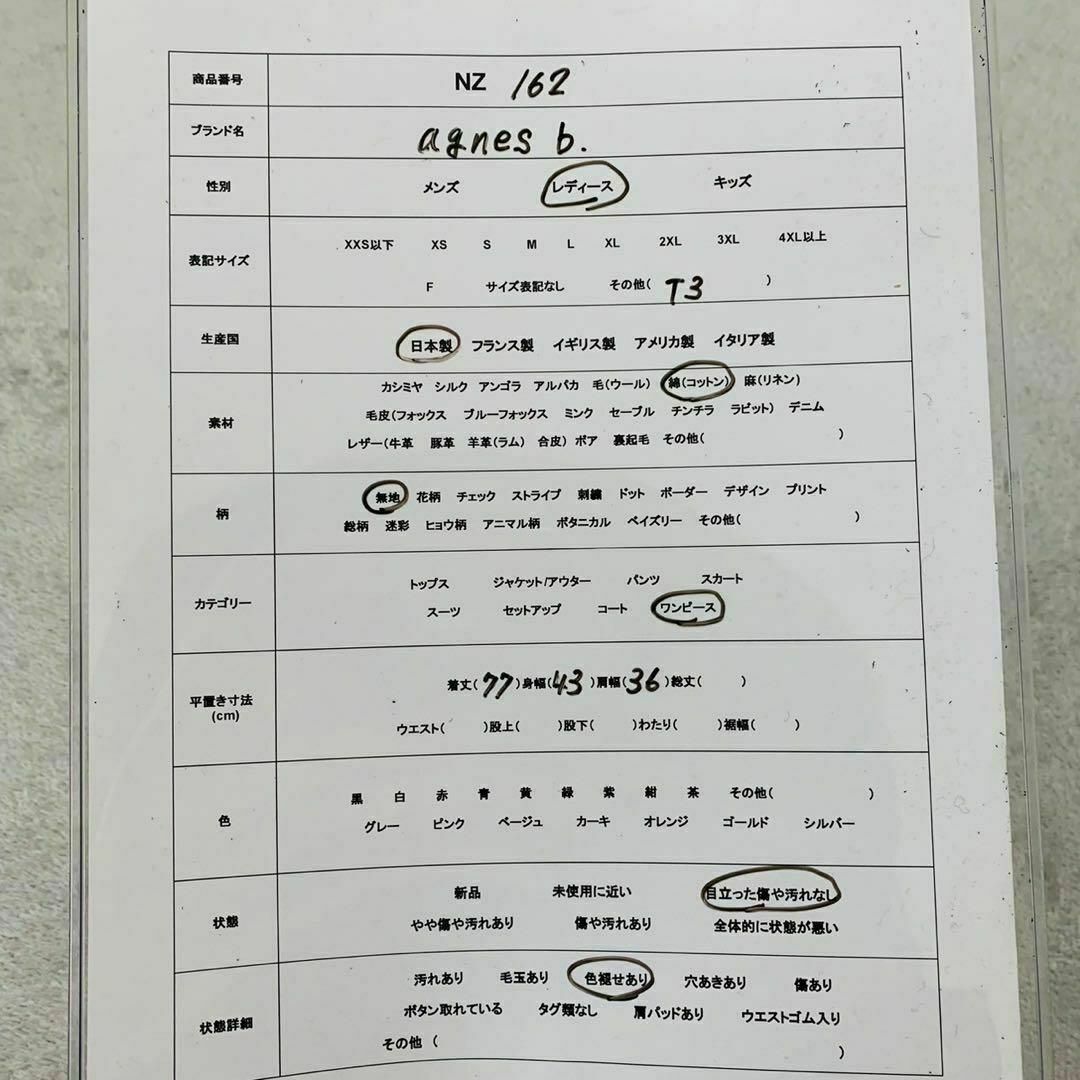 商品番号 NZ 162
ブランド名 agnes b.
性別 メンズ レディース キッズ
XXS以下 XS S M L XL 2XL 3XL 4XL以上
表記サイズ
F サイズ表記なし その他( T3 )
生産国 日本製 フランス製 イギリス製 アメリカ製 イタリア製
カシミヤ シルク アンゴラ アルパカ 毛(ウール) 綿(コットン) 麻(リネン)
素材 毛皮(フォックス ブルーフォックス ミンク セーブル チンチラ ラビット) デニム
レザー(牛革 豚革 羊革(ラム) 合皮) ボア 裏起毛 その他( )
無地 花柄 チェック ストライプ 刺繍 ドット ボーダー デザイン プリント
柄
総柄 迷彩 ヒョウ柄 アニマル柄 ボタニカル ペイズリー その他( )
トップス ジャケット/アウター パンツ スカート
カテゴリー
スーツ セットアップ コート ワンピース
平置き寸法 着丈( 77 )身幅( 43 )肩幅( 36 )総丈( )
(cm) ウエスト( )股上( )股下( )わたり( )裾幅( )
黒 白 赤 青 黄 緑 紫 紺 茶 その他( )
色
グレー ピンク ベージュ カーキ オレンジ ゴールド シルバー
新品 未使用に近い 目立った傷や汚れなし
状態
やや傷や汚れあり 傷や汚れあり 全体的に状態が悪い
汚れあり 毛玉あり 色褪せあり 穴あきあり 傷あり
状態詳細 ボタン取れている タグ類なし 肩パッドあり ウエストゴム入り
その他 ( )